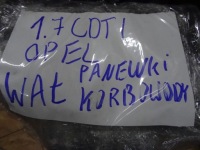 1.7 CDTI
OPEL
PANEWKI
WAŁ KORBOWODY